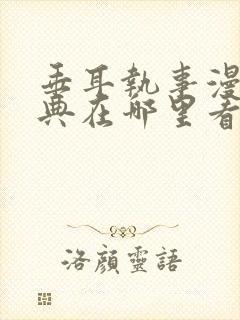 垂耳執事漫
典在哪里看
洛顔靈語